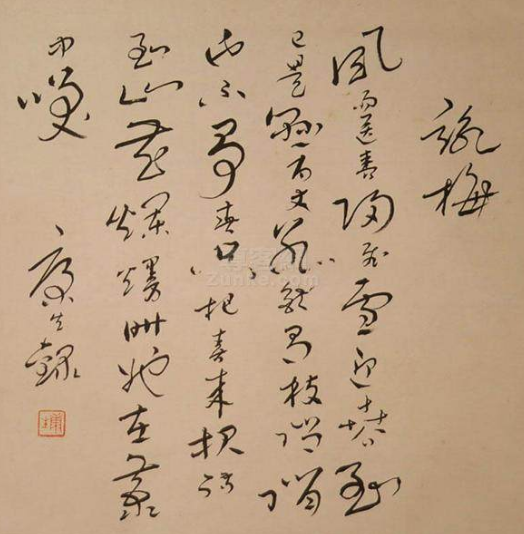 詠梅
風雨送春歸飛雪迎春到
已是懸崖百丈冰猶有花枝俏俏
也不爭春只把春来报待
到山花爛熳時她在叢
中笑
康生錄
Zunke.com